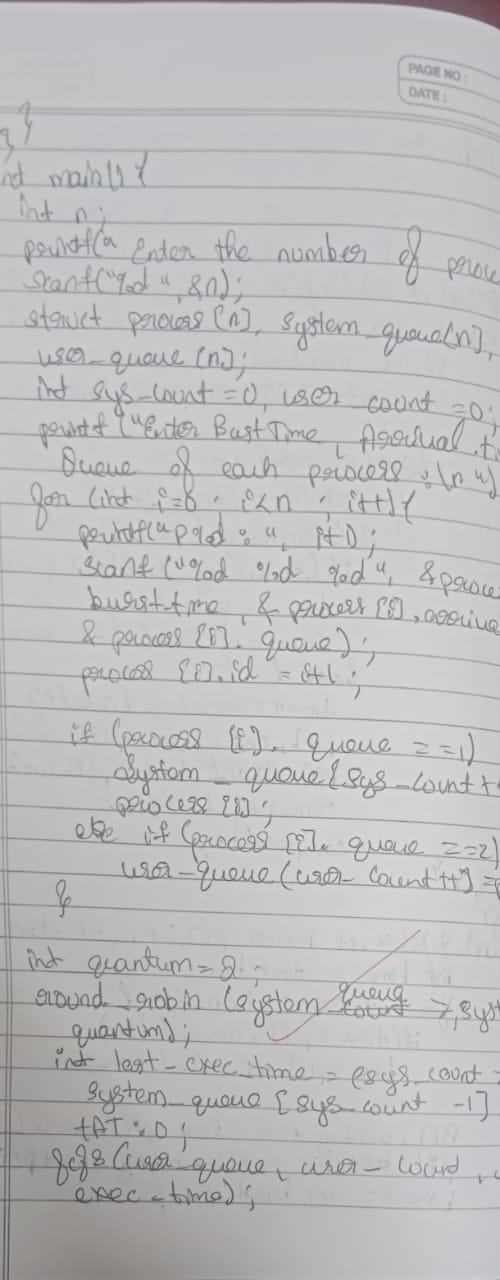 PAGE NO :
DATE :
}
}
int main() {
int n;
printf(" Enter the number of proce
scanf("%d", &n);
struct process [n], system_queue[n],
user_queue [n];
int sys_count = 0, user count = 0;
printf ("Enter Bust Time, Arrival t
Queue of each process : \n ")
for (int i=0 ; i<n ; i++) {
printf(" P%d : ", i+1);
scanf ("%d %d %d", & proce
burst-time, & process [i]. arriva
& process [i]. queue);
process [i]. id = i+1;
if (process [i]. queue == 1)
System_queue [sys_count +
process [i];
else if (process [i]. queue == 2)
user_queue (user_count ++] =
}
int quantum = 2;
round_robin (system_queue , syst
quantum);
int last_exec_time = (sys_count >
system_queue [sys_count -1]
tAT : 0;
fcfs (user_queue, user_count,
exec_time);